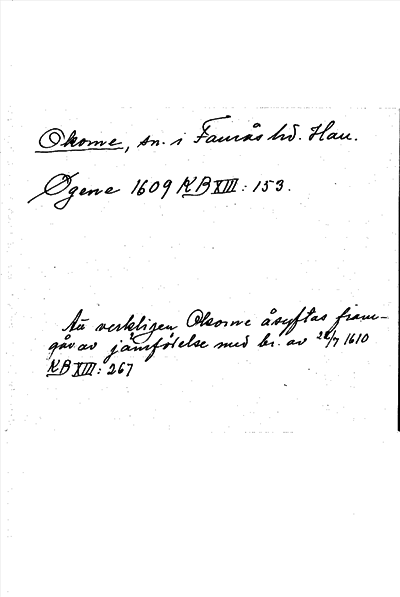 Okome, sn. i Faurås hd. Hall.
Øgene 1609 KB XIII: 153.
At verkligen Okome åsyftas fram-
går av jämförelse med br. av 28/7 1610
KB XIII: 267